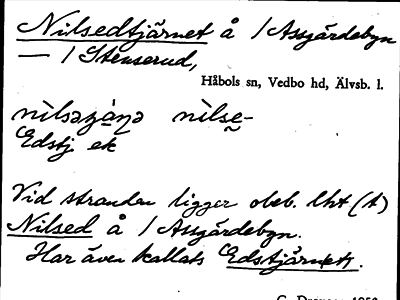 Nilsedtjärnet å 1 Assgärdebyn
— 1 Stenserud,
Håbols sn, Vedbo hd, Älvsb. l.
nilse-
Edstj ek
Vid stranden ligger obeb. lht (t)
Nilsed å 1 Assgärdebyn.
Har även kallats Edstjärnet.